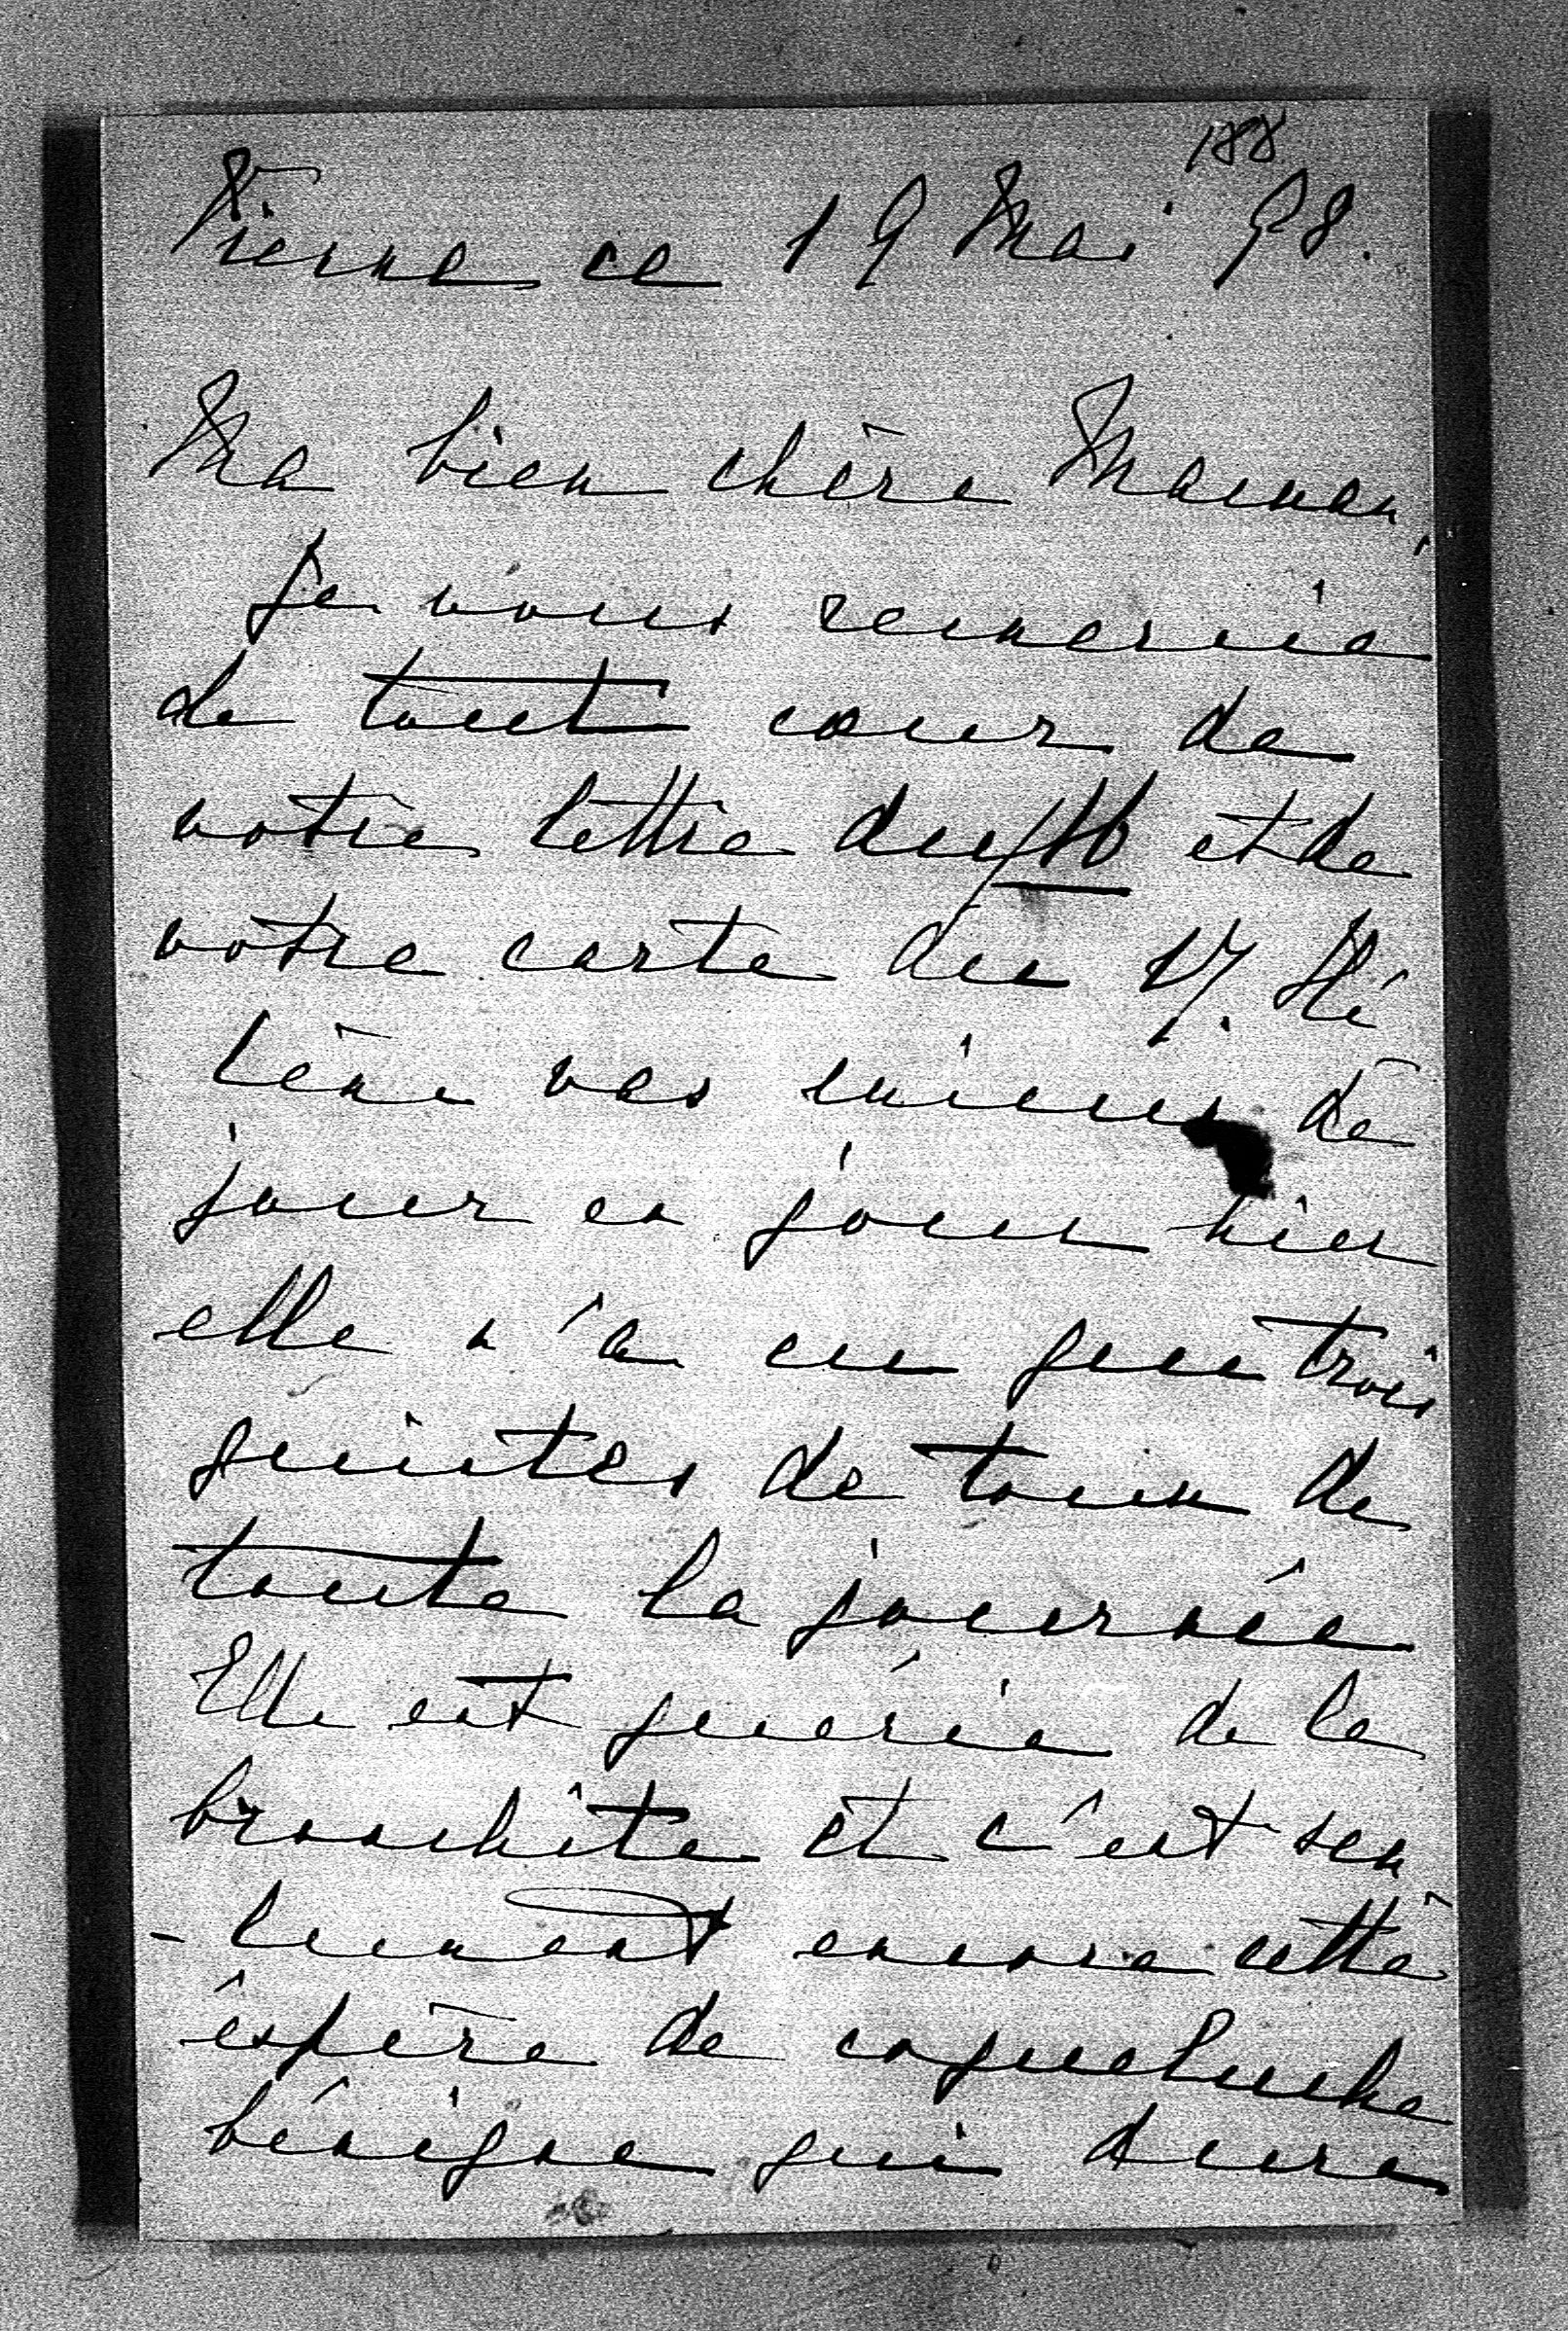 188
Vienne ce 19 Mai 98.
Ma bien chère Maman,
Je vous remercie
de tout coeur de
votre lettre du 16 et de
votre carte du 17. Hé
lène vas mieux de
jour en jour hier
elle n'a eu que trois
quintes de toux de
toute la journée
Elle est guérie de la
bronchite et c'est seu
-lement encore cette
espère de coqueluche
bénigne qui dure